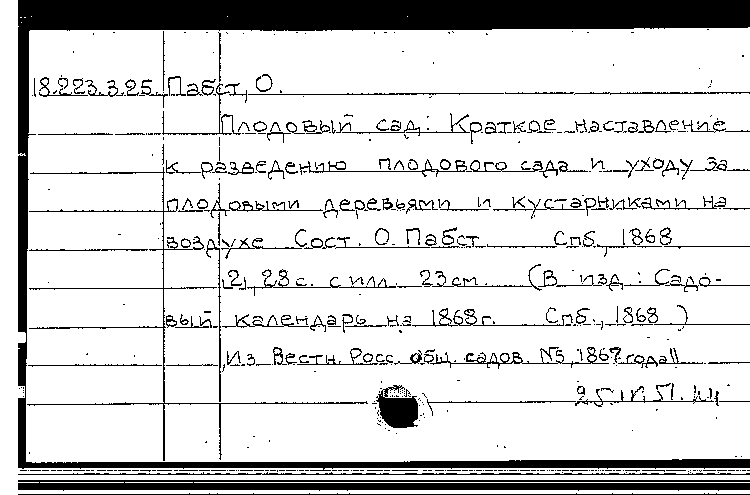 18.223.3.25. Пабст, О.
Плодовый сад: Краткое наставление
к разведению плодового сада и уходу за
плодовыми деревьями и кустарниками на
воздухе Сост. О. Пабст Спб., 1868
[2], 28 с. с илл. 23 см. (В изд.: Садо-
вый календарь на 1868 г. Спб., 1868.)
„Из Вестн. Росс. общ. садов. №5, 1867 года"